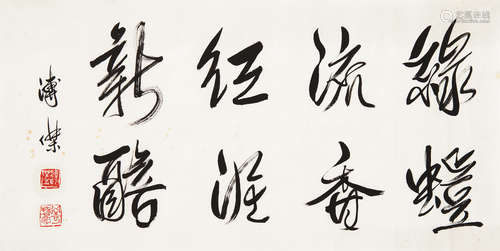 綠螘
流香
紅
新醅
溥傑